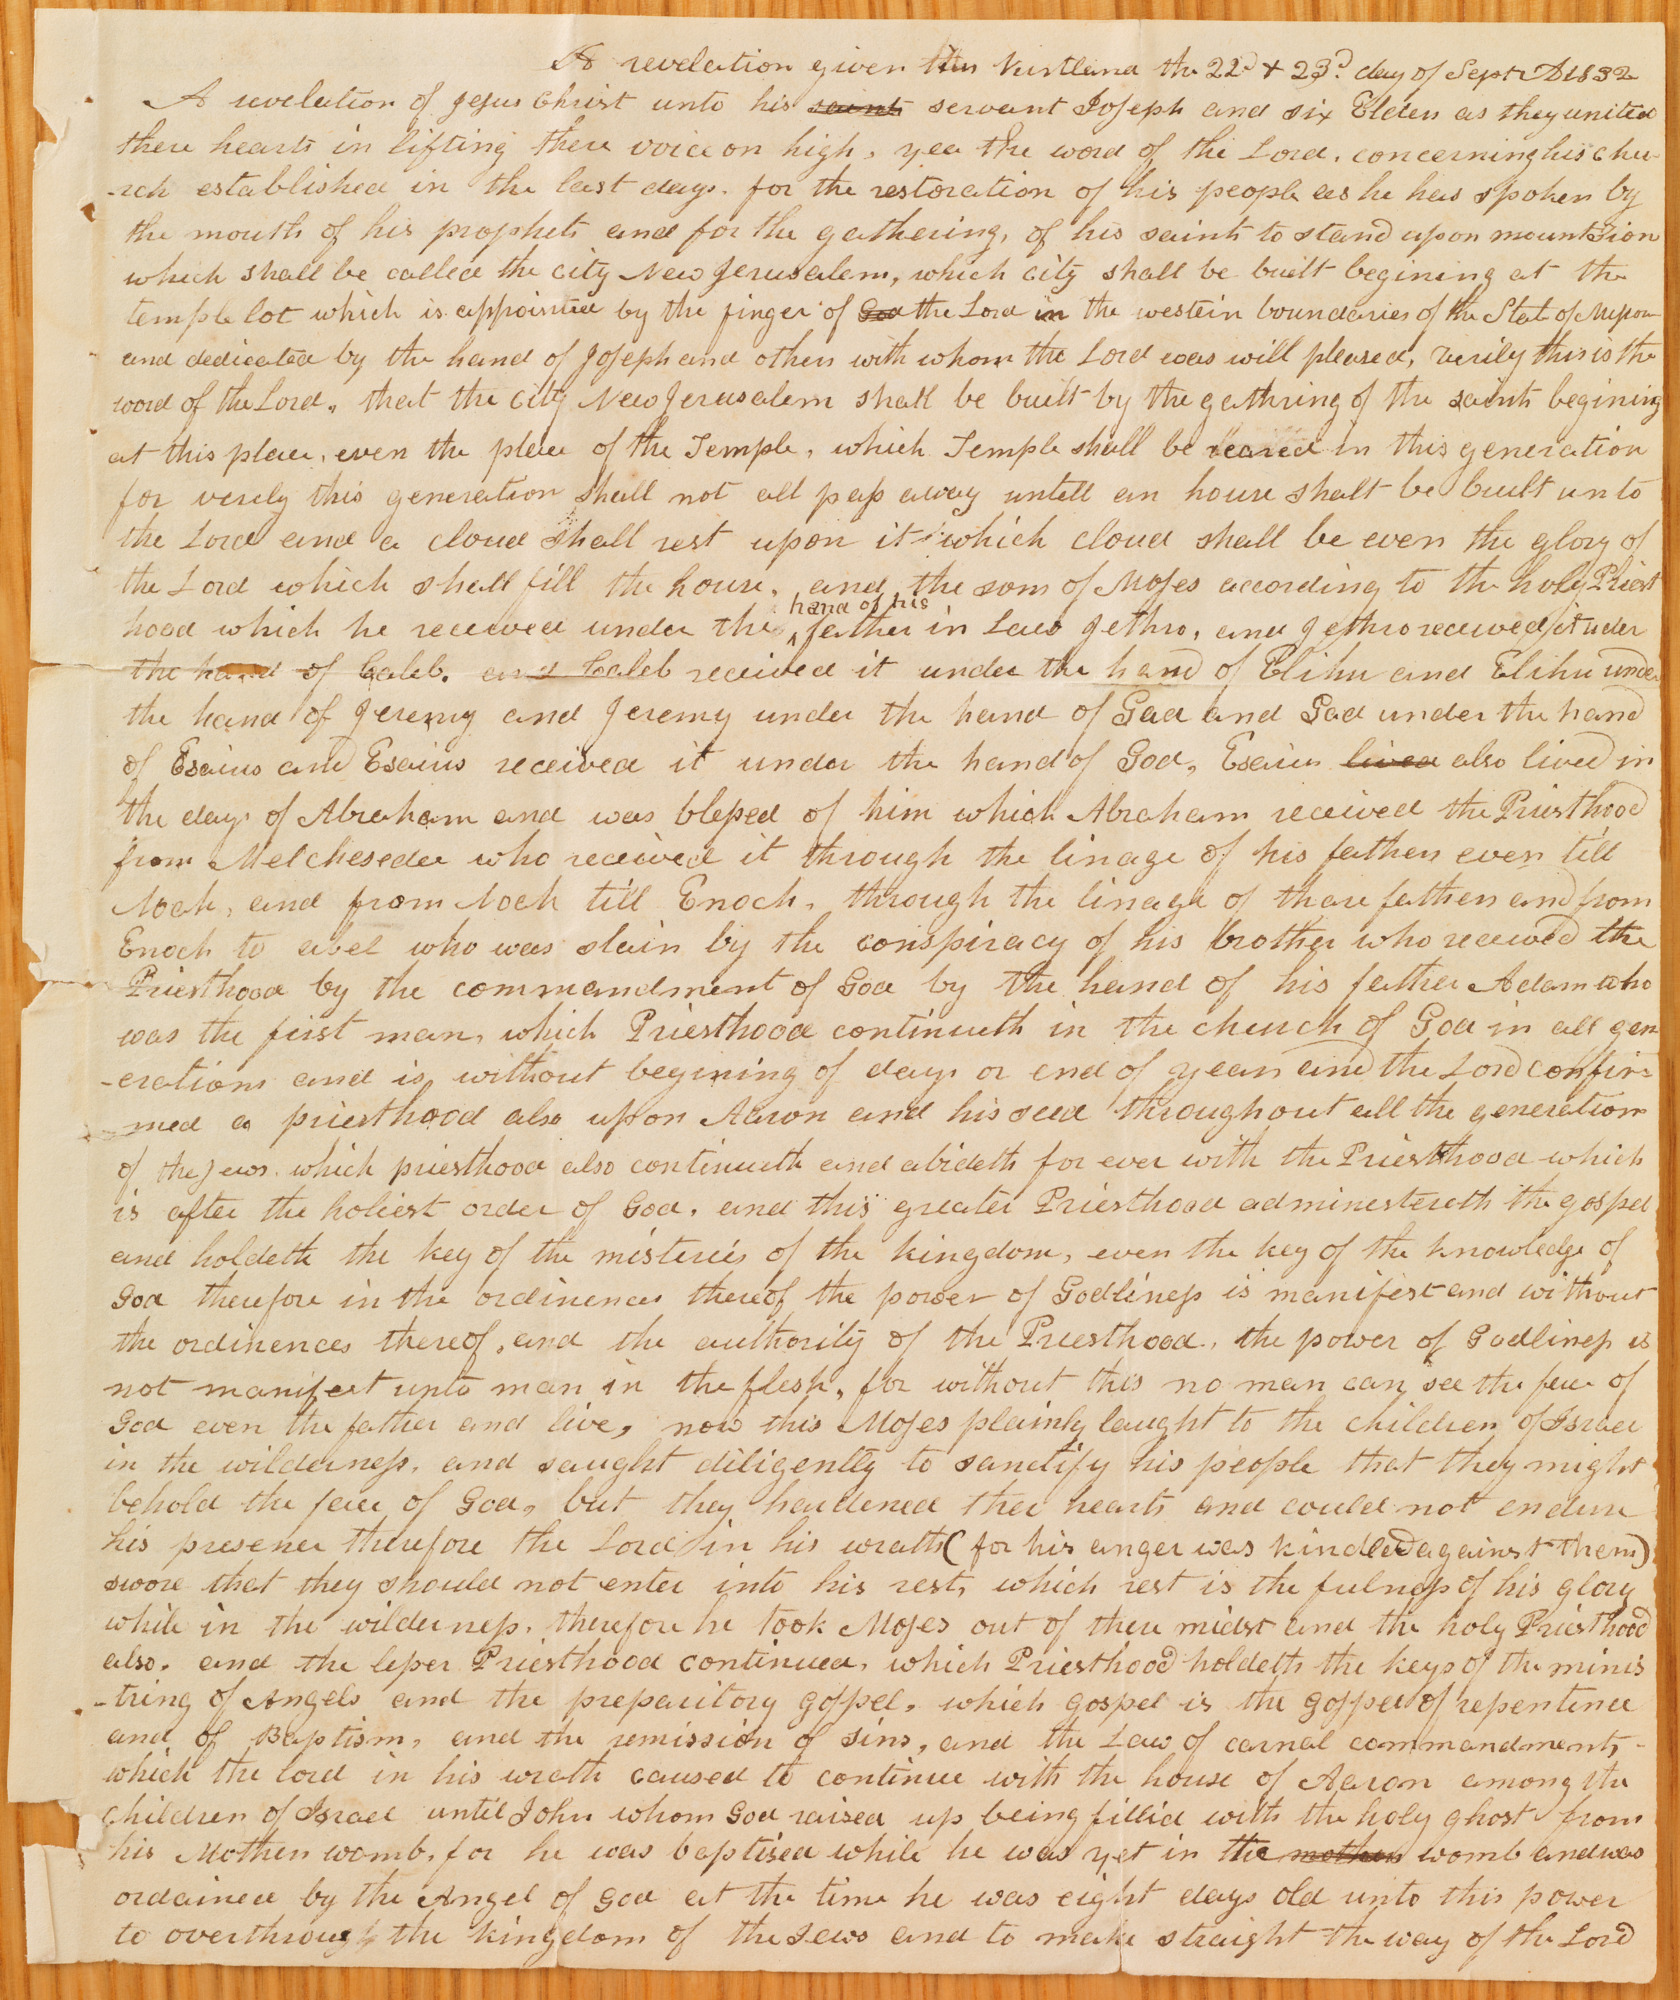 A revelation given Kirtland the 22d & 23d. day of Sept AD 1832
A revelation of Jesus Christ unto his saints servant Joseph and six Elders as they united
there hearts in lifting there voice on high, yea the word of the Lord. concerning his chu-
-rch established in the last days. for the restoration of his people as he has spoken by
the mouth of his prophets and for the gathering, of his saints to stand upon mount Zion
which shall be called the city New Jerusalem, which city shall be built begining at the
temple lot which is appointed by the finger of God the Lord in the western boundaries of the State of Missou
and dedicated by the hand of Joseph and others with whom the Lord was will pleased, verily this is the
word of the Lord, that the city New Jerusalem shall be built by the gathring of the saints begining
at this place, even the place of the Temple, which Temple shall be reared in this generation
for verely this generation shall not all pass away untell an house shall be built unto
the Lord and a cloud shall rest upon it which cloud shall be even the glory of
the Lord which shall fill the house, and the sons of Moses according to the holy Priest
hood which he received under the hand of his father in Law Jethro, and Jethro received it uder
the hand of Caleb. and Caleb received it under the hand of Elihu and Elihu under
the hand of Jeremy and Jeremy under the hand of Gad and Gad under the hand
of Esaius and Esaius received it under the hand of God, Esaius lived also lived in
the days of Abraham and was blessed of him which Abraham received the Priesthood
from Melchesedec who received it through the linage of his fathers even till
Noah, and from Noah till Enoch, through the linage of thare fathers and from
Enoch to abel who was slain by the conspiracy of his brother who received the
Priesthood by the commandment of God by the hand of his father Adam who
was the first man, which Priesthood continueth in the church of God in all gen
-erations and is without begining of days or end of years and the Lord confir=
-med a priesthood also upon Aaron and his seed throughout all the generations
of the Jews. which priesthood also continueth and abideth for ever with the Priesthood which
is after the holiest order of God, and this greater Priesthood adminestereth the gospel
and holdeth the key of the misteries of the kingdom, even the key of the knowledge of
God therefore in the ordinences thereof the power of Godliness is manifest and without
the ordinences thereof, and the authority of the Priesthood, the power of Godliness is
not manifest unto man in the flesh, for without this no man can see the face of
God even the father and live, now this Moses plainly taught to the children of Israel
in the wilderness, and saught diligently to sanctify his people that they might
behold the face of God, but they hardened ther hearts and could not endure
his presence therefore the Lord in his wrath (for his anger was kindled against them)
swore that they should not enter into his rest, which rest is the fulness of his glory
while in the wilderness, therefore he took Moses out of there midst and the holy Priesthood
also. and the lesser Priesthood continued, which Priesthood holdeth the keys of the minis
-tring of Angels and the preparitory gospel, which gospel is the gospel of repentence
and of Baptism, and the remission of sins, and the Law of carnal commandments-
which the lord in his wrath caused to continue with the house of Aaron among the
children of Israel until John whom God raised up being fillid with the holy ghost from
his Mothers womb, for he was baptised while he was yet in the mothers womb and was
ordained by the Angel of God at the time he was eight days old unto this power
to overthrough the kingdom of the Jews and to make straight the way of the Lord